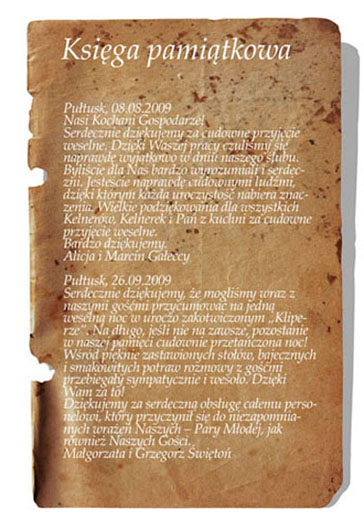 Księga pamiątkowa
Pułtusk, 08.08.2009
Nasi Kochani Gospodarze!
Serdecznie dziękujemy za cudowne przyjęcie
weselne. Dzięki Waszej pracy czuliśmy się
naprawdę wyjątkowo w dniu naszego ślubu.
Byliście dla Nas bardzo wyrozumiali i serdecz-
zni. Jesteście naprawdę cudownymi ludźmi,
dzięki którym każda uroczystość nabiera znac-
zenia. Wielkie podziękowania dla wszystkich
Kelnerów, Kelnerek i Pań z kuchni za cudowne
przyjęcie weselne.
Bardzo dziękujemy.
Alicja i Marcin Gałeccy
Pułtusk, 26.09.2009
Serdecznie dziękujemy, że mogliśmy wraz z
naszymi gośćmi przycumować na jedną
weselną noc w uroczo zakotwiczonym „Klipe-
rze”. Na długo, jeśli nie na zawsze, pozostanie
w naszej pamięci cudownie przetańczona noc!
Wśród pięknie zastawionych stołów, bajecznych
i smakowitych potraw rozmowy z gośćmi
przebiegały sympatycznie i wesoło. Dzięki
Wam za to!
Dziękujemy za serdeczną obsługę całemu perso-
nelowi, który przyczynił się do niezapomnia-
nych wrażeń Naszych – Pary Młodej, jak
również Naszych Gości.
Małgorzata i Grzegorz Świętoń